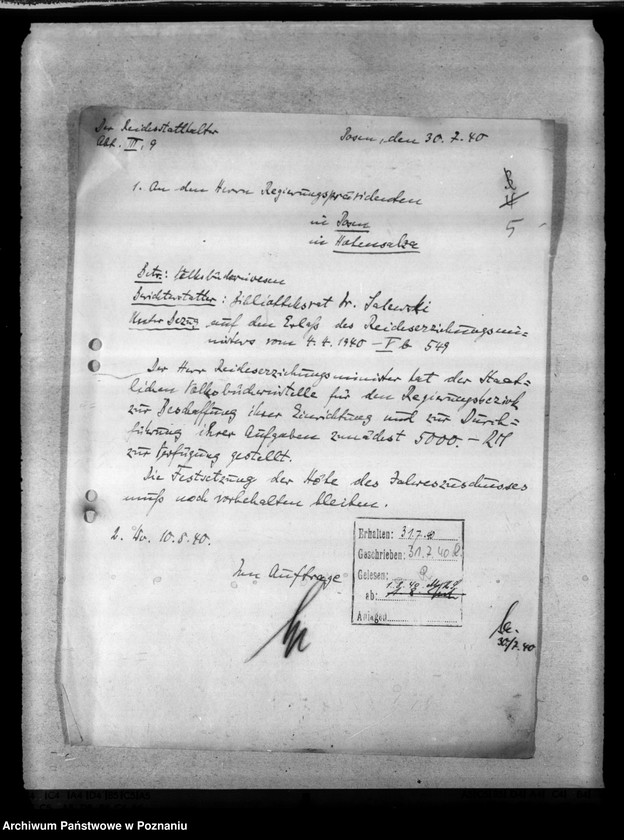 Der Reichsstatthalter
Abt. III, 9
Posen, den 30.7.40
5
1. An den Herrn Regierungspräsidenten
in Posen
in Hohensalza
Betr.: Volksbüchereiwesen
Berichterstatter: Bibliotheksrat Dr. Salewski
Unter Bezug auf den Erlaß des Reichserziehungsmi=
nisters vom 4.4.1940 – V b 549
Der Herr Reichserziehungsminister hat der Staat=
lichen Volksbüchereistelle für den Regierungsbezirk
zur Beschaffung ihrer Einrichtung und zur Durch=
führung ihrer Aufgaben zunächst 5000.– RM
zur Verfügung gestellt.
Die Festsetzung der Höhe des Jahreszuschusses
muß noch vorbehalten bleiben.
2. Wv. 10.8.40.
Im Auftrage
Erhalten: 31.7.40
Geschrieben: 31.7.40
Gelesen:
ab:
Anlagen
30/7.40
Archiwum Państwowe w Poznaniu